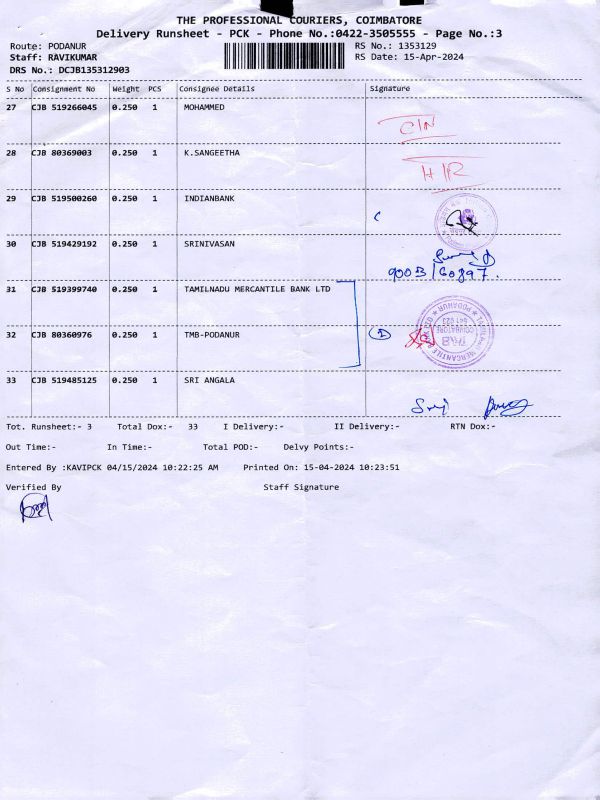 THE PROFESSIONAL COURIERS, COIMBATORE
Delivery Runsheet - PCK - Phone No.:0422-3505555 - Page No.:3
Route: PODANUR RS No.: 1353129
Staff: RAVIKUMAR RS Date: 15-Apr-2024
DRS No.: DCJB135312903
S No Consignment No Weight PCS Consignee Details Signature
27 CJB 519266045 0.250 1 MOHAMMED
CIN
28 CJB 80369003 0.250 1 K.SANGEETHA
HR
29 CJB 519500260 0.250 1 INDIANBANK
30 CJB 519429192 0.250 1 SRINIVASAN
31 CJB 519399740 0.250 1 TAMILNADU MERCANTILE BANK LTD
32 CJB 80360976 0.250 1 TMB-PODANUR
PODANUR
COIMBATORE
641 023
33 CJB 519485125 0.250 1 SRI ANGALA
Tot. Runsheet:- 3 Total Dox:- 33 I Delivery:- II Delivery:- RTN Dox:-
Out Time:- In Time:- Total POD:- Delvy Points:-
Entered By :KAVIPCK 04/15/2024 10:22:25 AM Printed On: 15-04-2024 10:23:51
Verified By Staff Signature